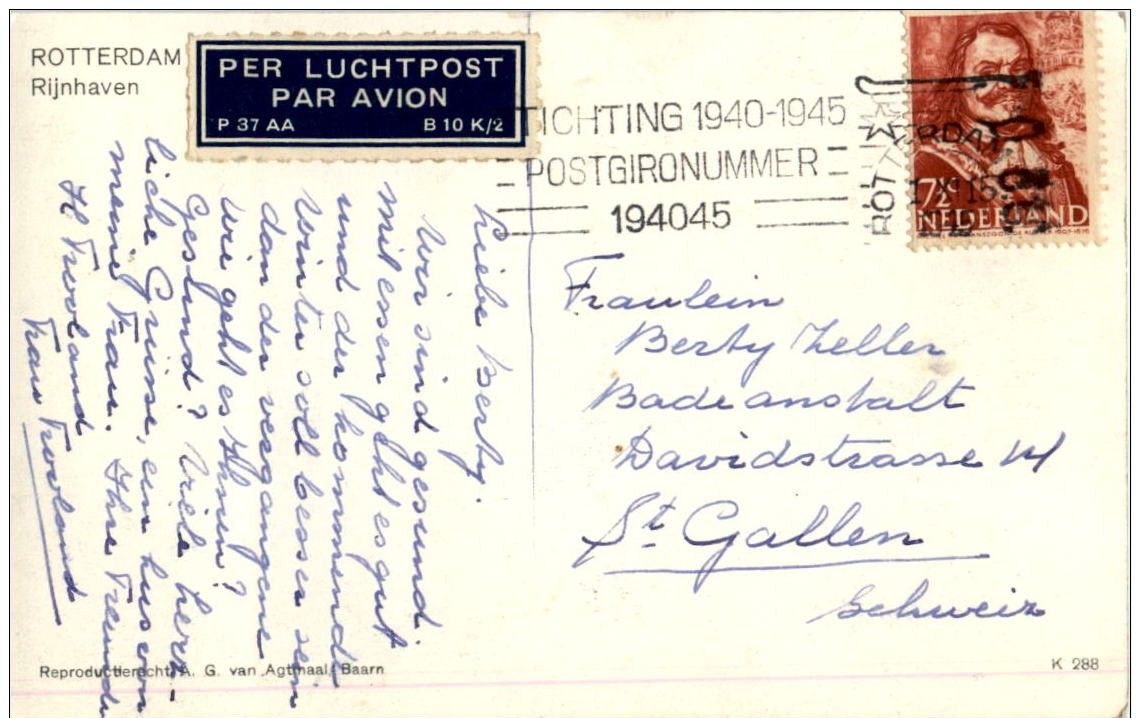 ROTTERDAM
Rijnhaven
PER LUCHTPOST
PAR AVION
P 37 AA B 10 K/2
TICHTING 1940-1945
POSTGIRONUMMER
194045
ROTTERDAM
7½
NEDERLAND
Liebe Berty.
Wir sind gesund.
Mit essen geht es gut
und der kommende
Winter soll besser sein
dan der vergangene
Wie geht es Ihnen?
Gesund? Viele herz-
liche Grüsse, ein kuss von
meine Frau. Ihre Freunde
Fraulein
Berty Zeller
Badeanstalt
Davidstrasse
St. Gallen
Schweiz
Reproductierecht A. G. van Agtmaal, Baarn
K 288